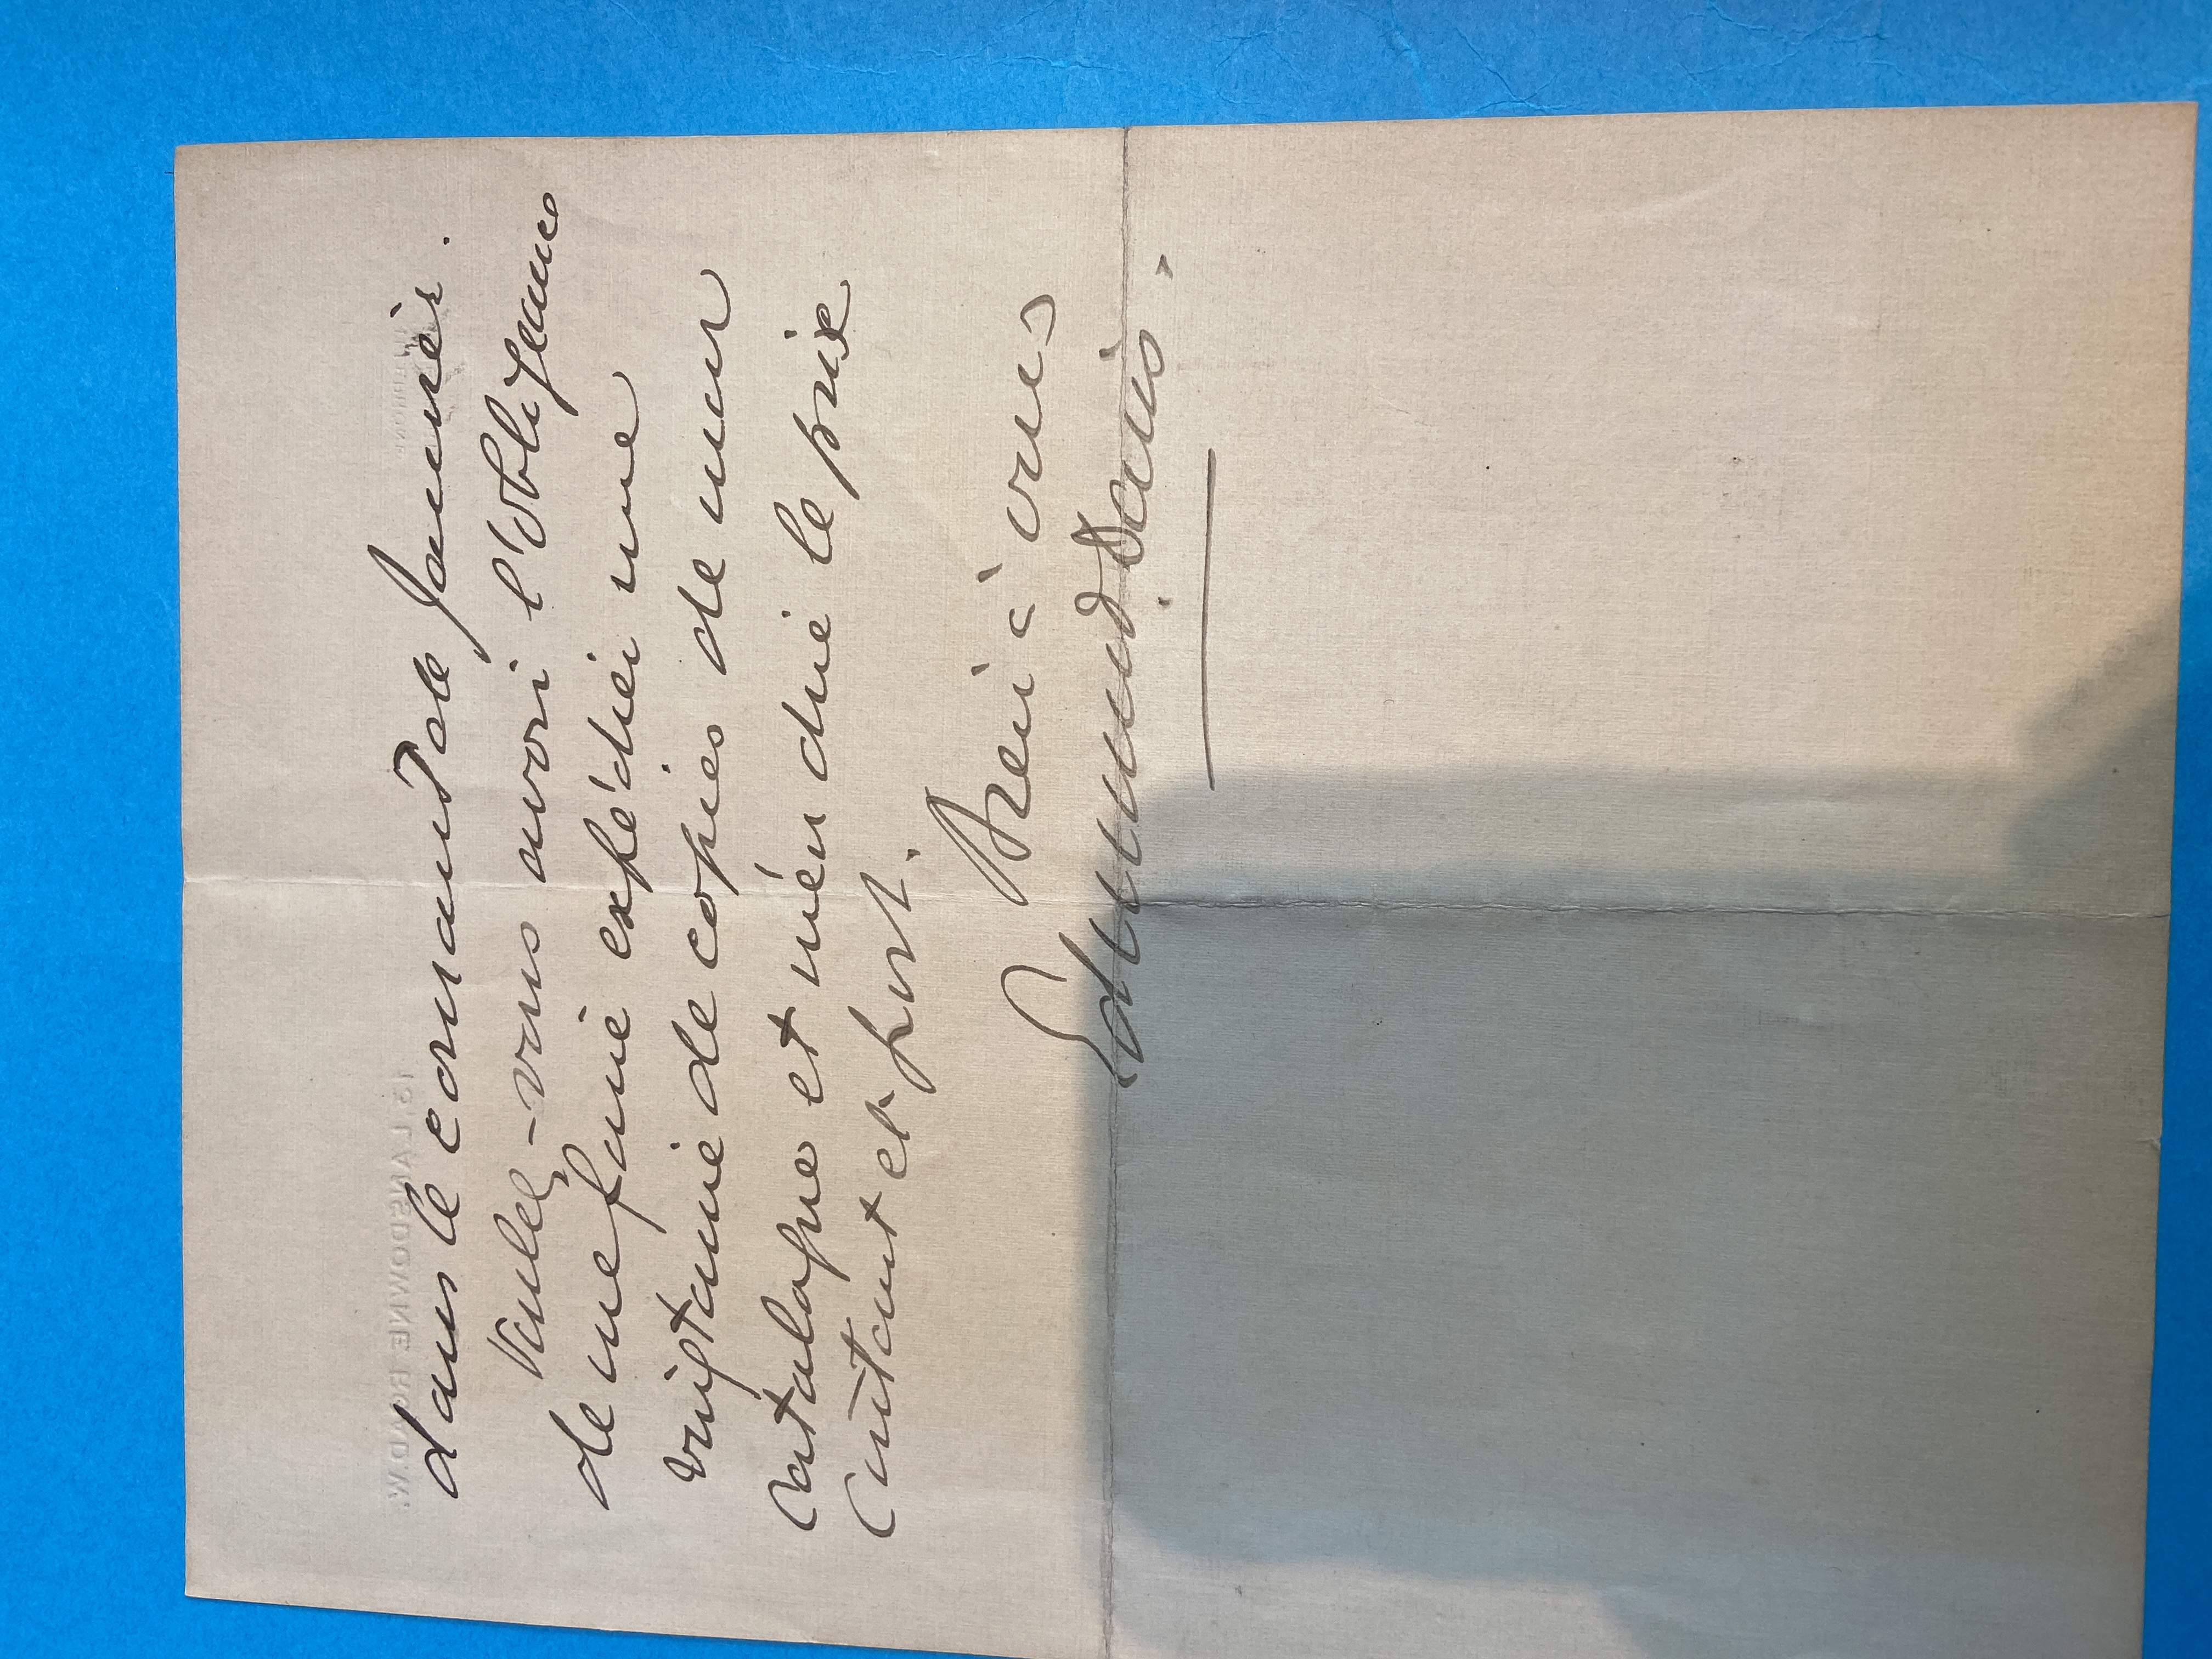 dans le courant de Janvier.
Voulez-vous avoir l'obligeance
de me faire expédier une
vingtaine de copies de mon
catalogue et m'en dire le prix
coûtant et port.
Bien à vous
Edmund Davis.
13, LANSDOWNE ROAD, W.